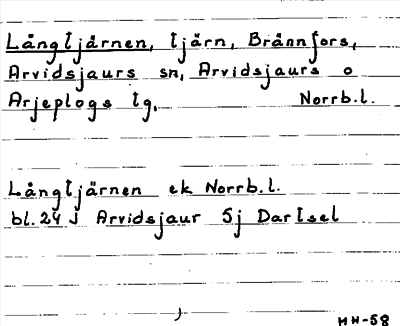 Långtjärnen, tjärn, Brännfors,
Arvidsjaurs sn, Arvidsjaurs o
Arjeplogs tg. Norrb.l.
Långtjärnen ek Norrb.l.
bl. 24 J Arvidsjaur 5j Dartsel
MH-58